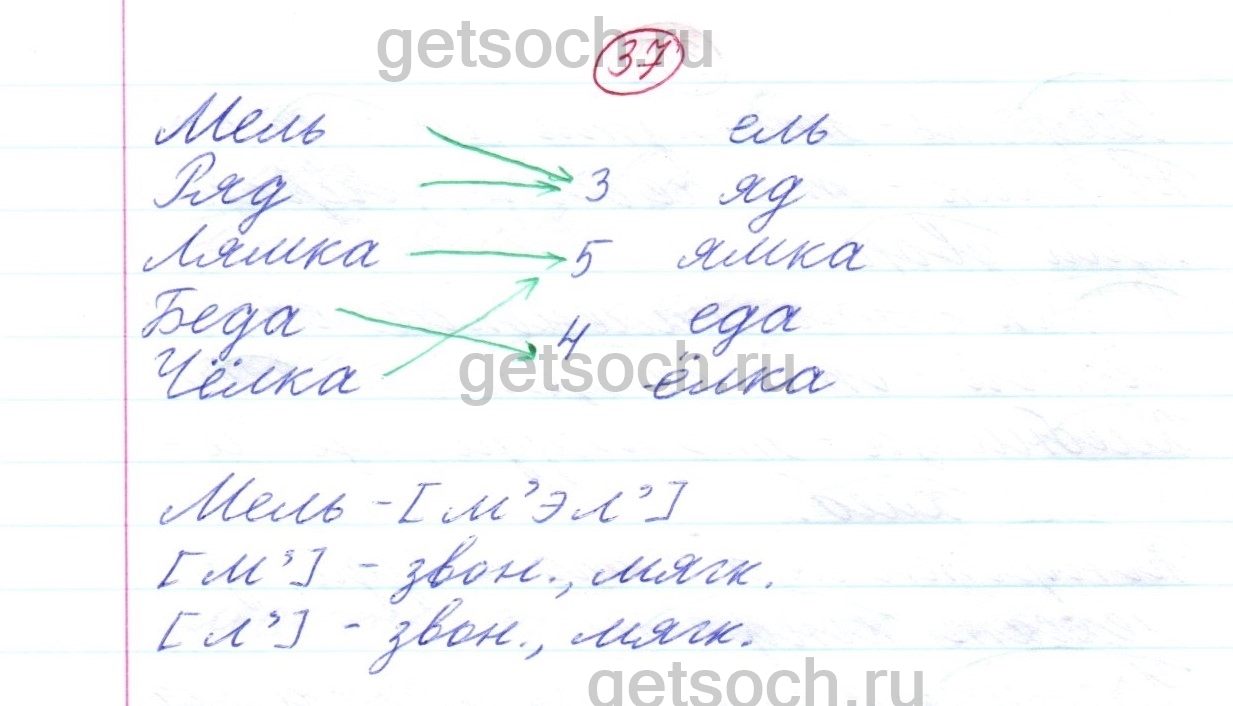 getsoch.ru
37
Мель ель
Ряд 3 яд
Лямка 5 ямка
Беда 4 еда
getsoch.ru
Чёлка ёлка
Мель - [м'эл']
[м'] - звон., мягк.
[л'] - звон., мягк.
getsoch.ru